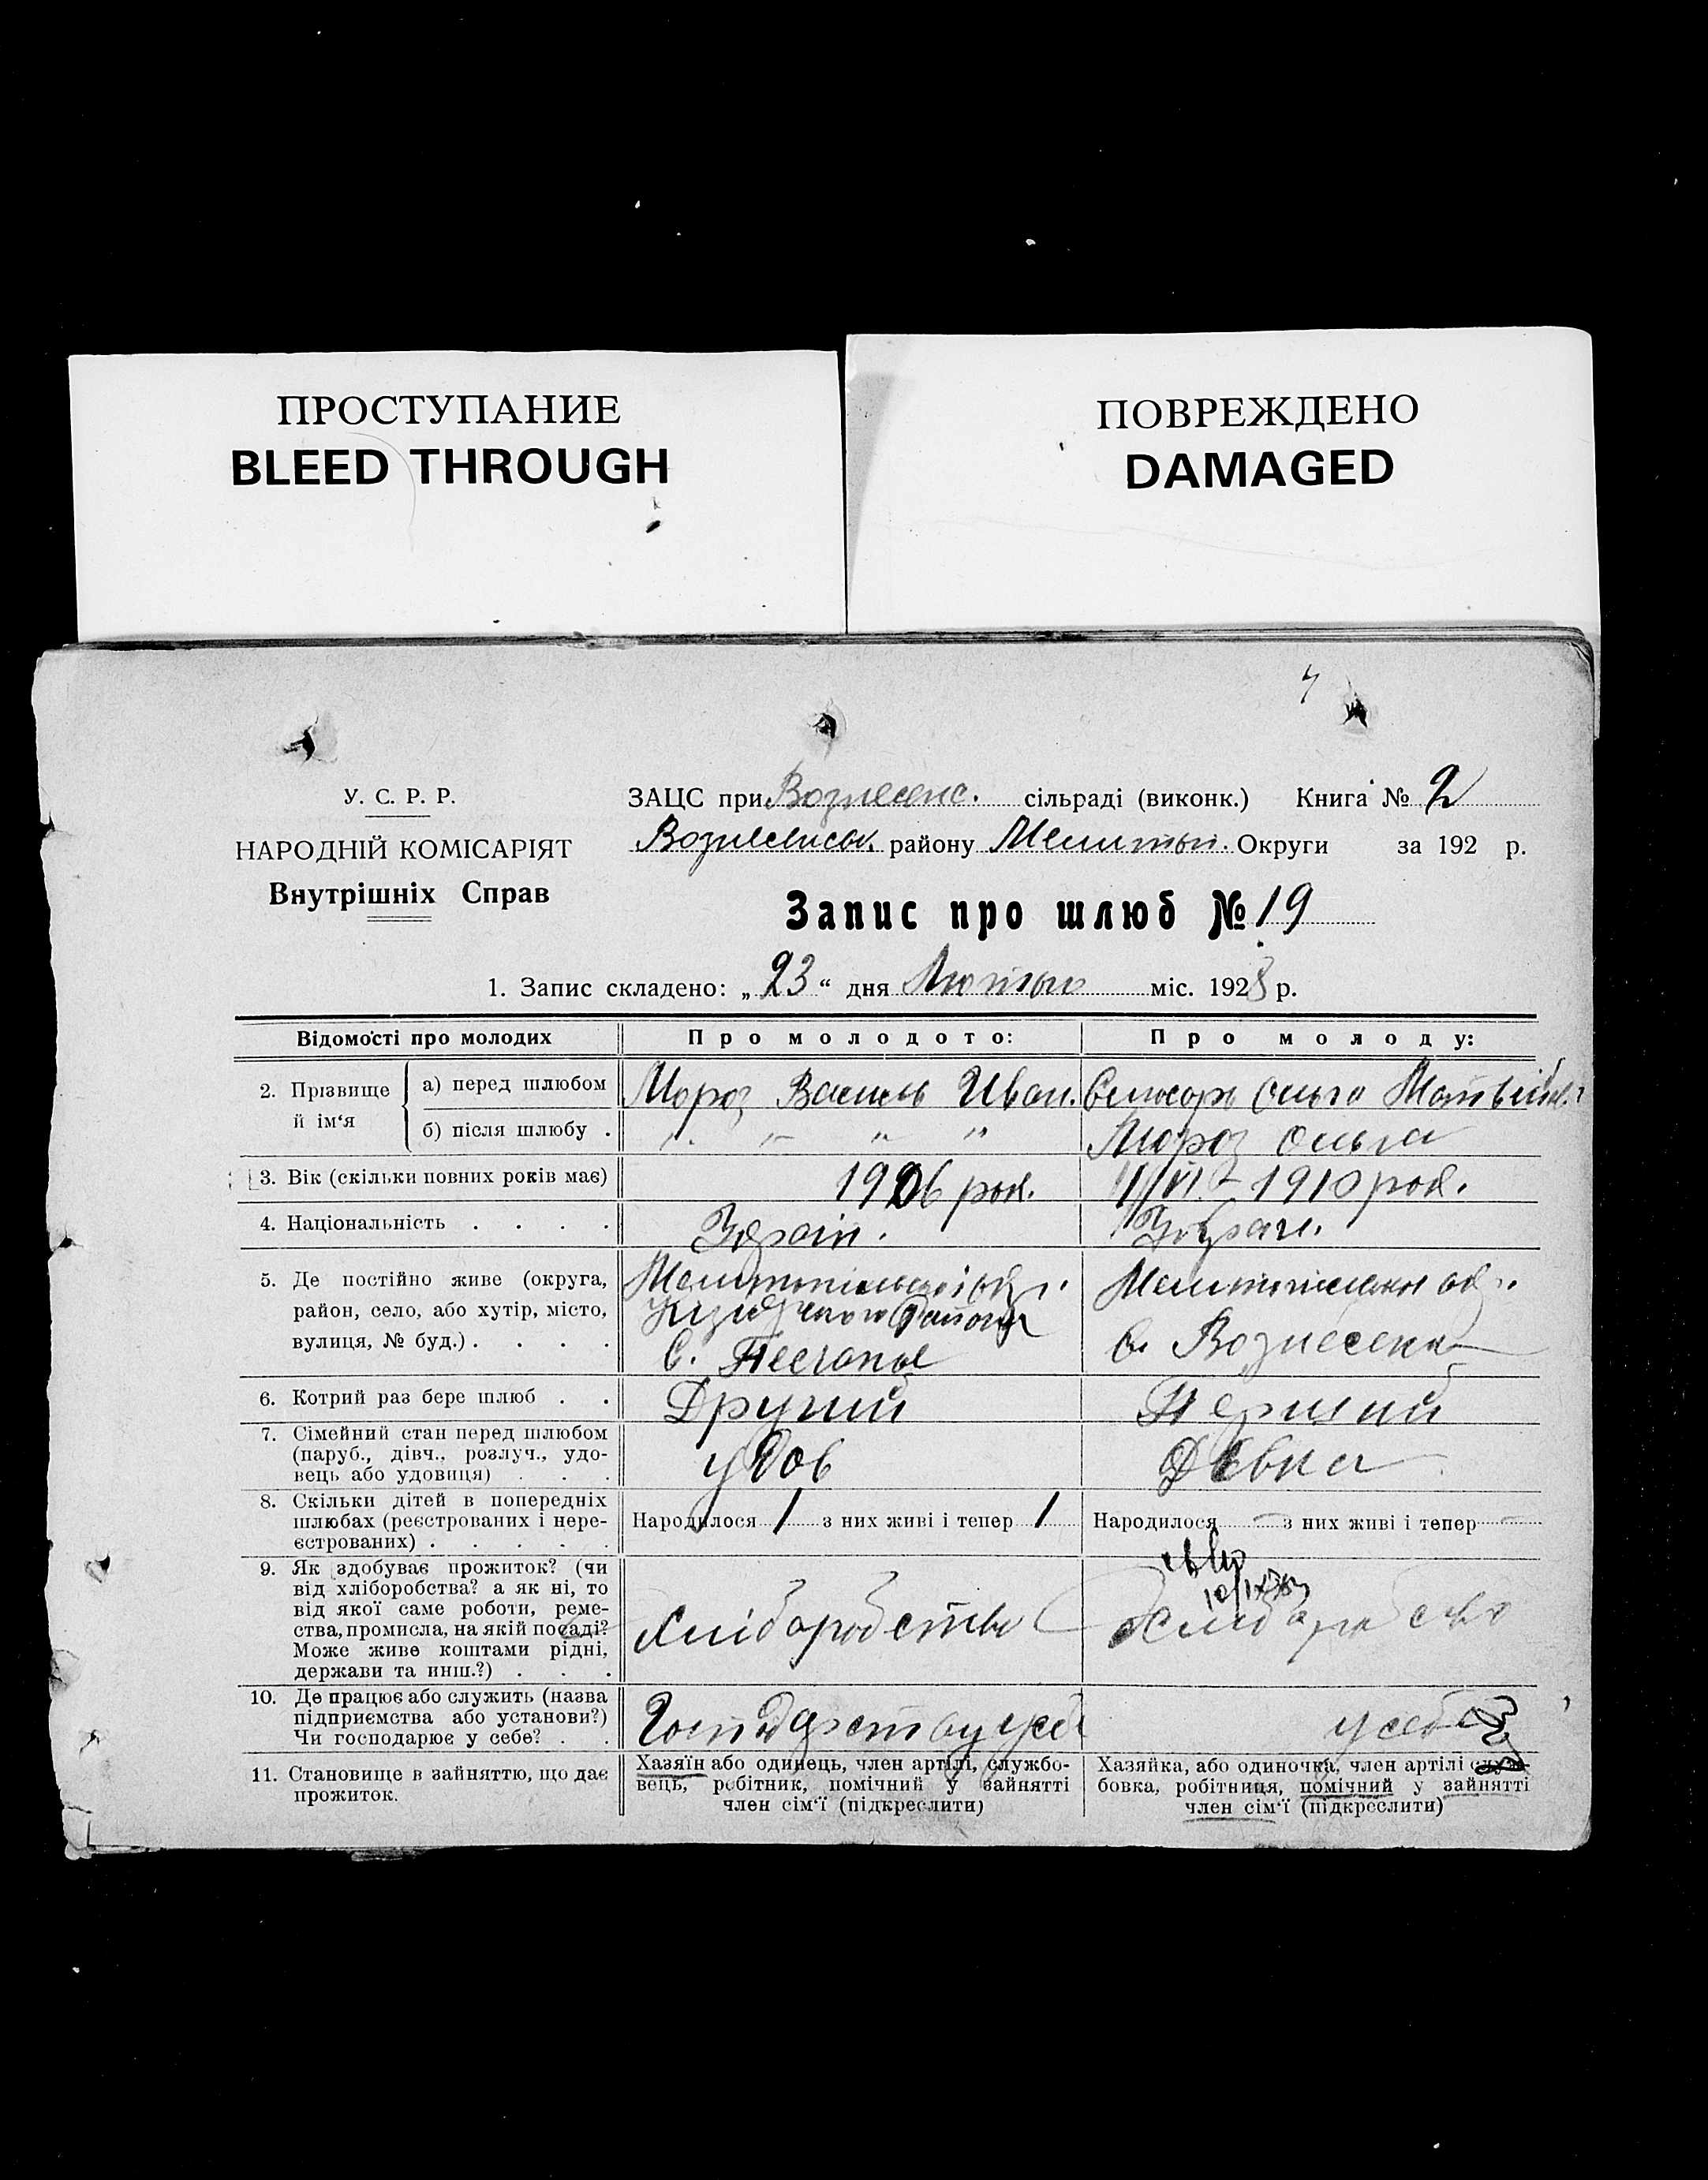 ПРОСТУПАНИЕ
BLEED THROUGH
ПОВРЕЖДЕНО
DAMAGED
У. С. Р. Р.
НАРОДНІЙ КОМІСАРІЯТ
Внутрішніх Справ
ЗАЦС при Вознесенс. сільраді (виконк.) Книга № 2
Вознесенськ. району Мелитоп. Округи за 192 р.
Запис про шлюб № 19
1. Запис складено: „23“ дня Лютого міс. 1928 р.
Відомості про молодих
Про молодого:
Про молоду:
2. Прізвище й ім‘я
а) перед шлюбом
Мороз Василь Иван.
Слюсарь Ольга Матвійов.
б) після шлюбу .
" " " "
Мороз Ольга
3. Вік (скільки повних років має)
1906 рок.
11/VI - 1910 рок.
4. Національність . . . .
Украін.
Украін.
5. Де постійно живе (округа,
район, село, або хутір, місто,
вулиця, № буд.) . . . .
Мелитопільської окр.
Кизіярского Району
с. Песчаное
Мелитопільської окр.
с. Вознесенка
6. Котрий раз бере шлюб . .
Другий
Перший
7. Сімейний стан перед шлюбом
(паруб., дівч., розлуч., удо-
вець або удовиця) . . .
удов
Девка
8. Скільки дітей в попередніх
шлюбах (реєстрованих і нере-
єстрованих) . . . . .
Народилося 1 з них живі і тепер 1
Народилося — з них живі і тепер —
9. Як здобуває прожиток? (чи
від хліборобства? а як ні, то
від якої саме роботи, реме-
ства, промисла, на якій посаді?
Може живе коштами рідні,
держави та инш.?) . . .
Хліборобство
Хлиборобство
10. Де працює або служить (назва
підприємства або установи?)
Чи господарює у себе? . .
Господарство у себе
у себе
11. Становище в зайняттю, що дає
прожиток.
Хазяїн або одинець, член артілі, службо-
вець, робітник, помічний у зайнятті
член сім‘ї (підкреслити)
Хазяйка, або одиночка, член артілі служ-
бовка, робітниця, помічний у зайнятті
член сім‘ї (підкреслити)